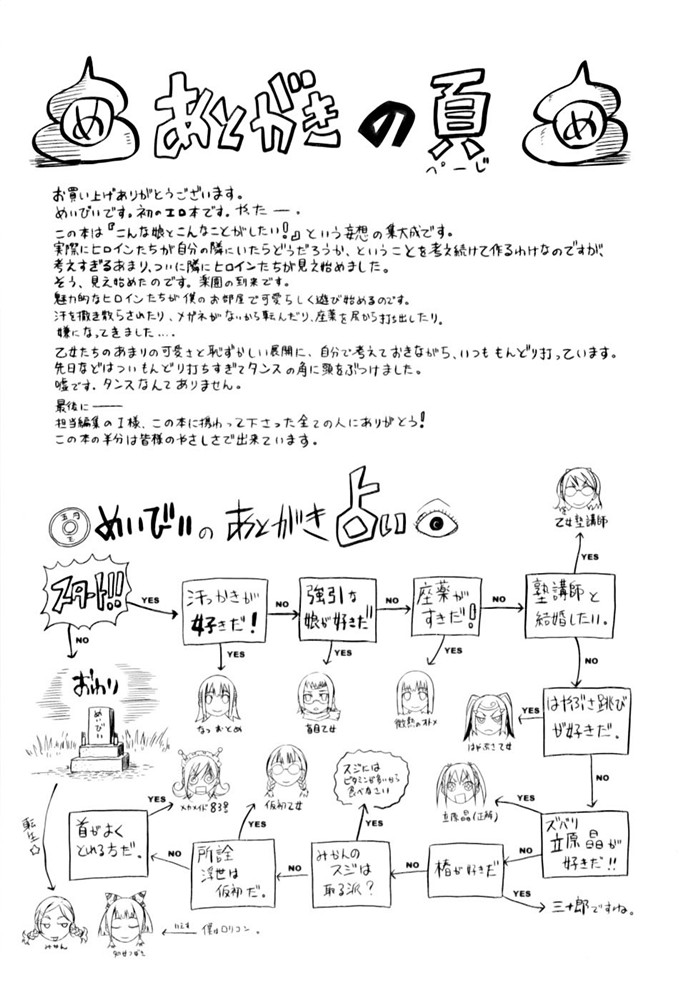 め
あとがきの頁
ぺーじ
め
お買い上げありがとうございます。
めいびいです。初のエロ本です。やったー。
この本は『こんな娘とこんなことがしたい!』という妄想の集大成です。
実際にヒロインたちが自分の隣にいたらどうだろうか、ということを考え続けて作るわけなのですが、
考えすぎるあまり、ついに隣にヒロインたちが見え始めました。
そう、見え始めたのです。楽園の到来です。
魅力的なヒロインたちが僕のお部屋で可愛らしく遊び始めるのです。
汗を撒き散らされたり、メガネがないから転んだり、座薬を尻から打ち出したり。
嫌になってきました....
乙女たちのあまりの可愛さと恥ずかしい展開に、自分で考えておきながら、いつももんどり打っています。
先日などはついもんどり打ちすぎてタンスの角に頭をぶつけました。
嘘です。タンスなんてありません。
最後に――
担当編集のI様、この本に携わって下さった全ての人にありがとう!
この本の半分は皆様のやさしさで出来ています。
めいびいのあとがき占い
スタート!!!
YES
汗っかきが
好きだ!
NO
強引な
娘が好きだ
NO
座薬が
すきだ!
NO
塾講師と
結婚したい。
YES
乙女塾講師
NO
おわり
めいびい
YES
なつおとめ
YES
盲目乙女
YES
微熱のオトメ
NO
はやぶさ跳び
が好きだ。
YES
はやぶさ乙女
NO
ズバリ
立原晶が
好きだ!!
YES
立原晶(正解)
NO
椿が好きだ
YES
三十郎ですね。
NO
みかんの
スジは
取る派?
YES
スジには
ビタミンが多いから
食べなさい
NO
所詮
浮世は
仮初だ。
YES
仮初乙女
NO
首がよく
とれる方だ。
YES
メカメイド83号
転生☆
みかん
僕はロリコン。